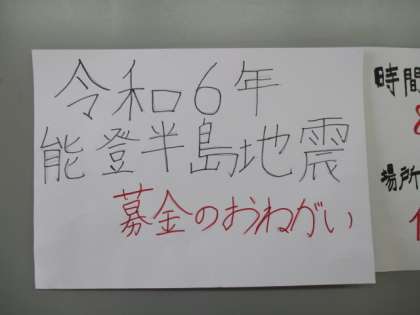 令和6年
能登半島地震
募金のおねがい
時間
場所